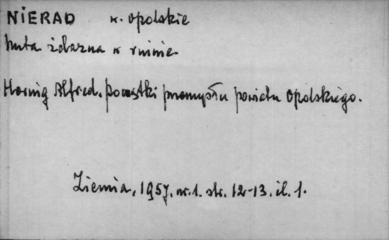 NIERAD w. opolskie
huta żelazna w ruinie.
Hornig Alfred. Początki przemysłu powiatu Opolskiego.
Ziemia, 1957. nr. 1. str. 12-13. il. 1.